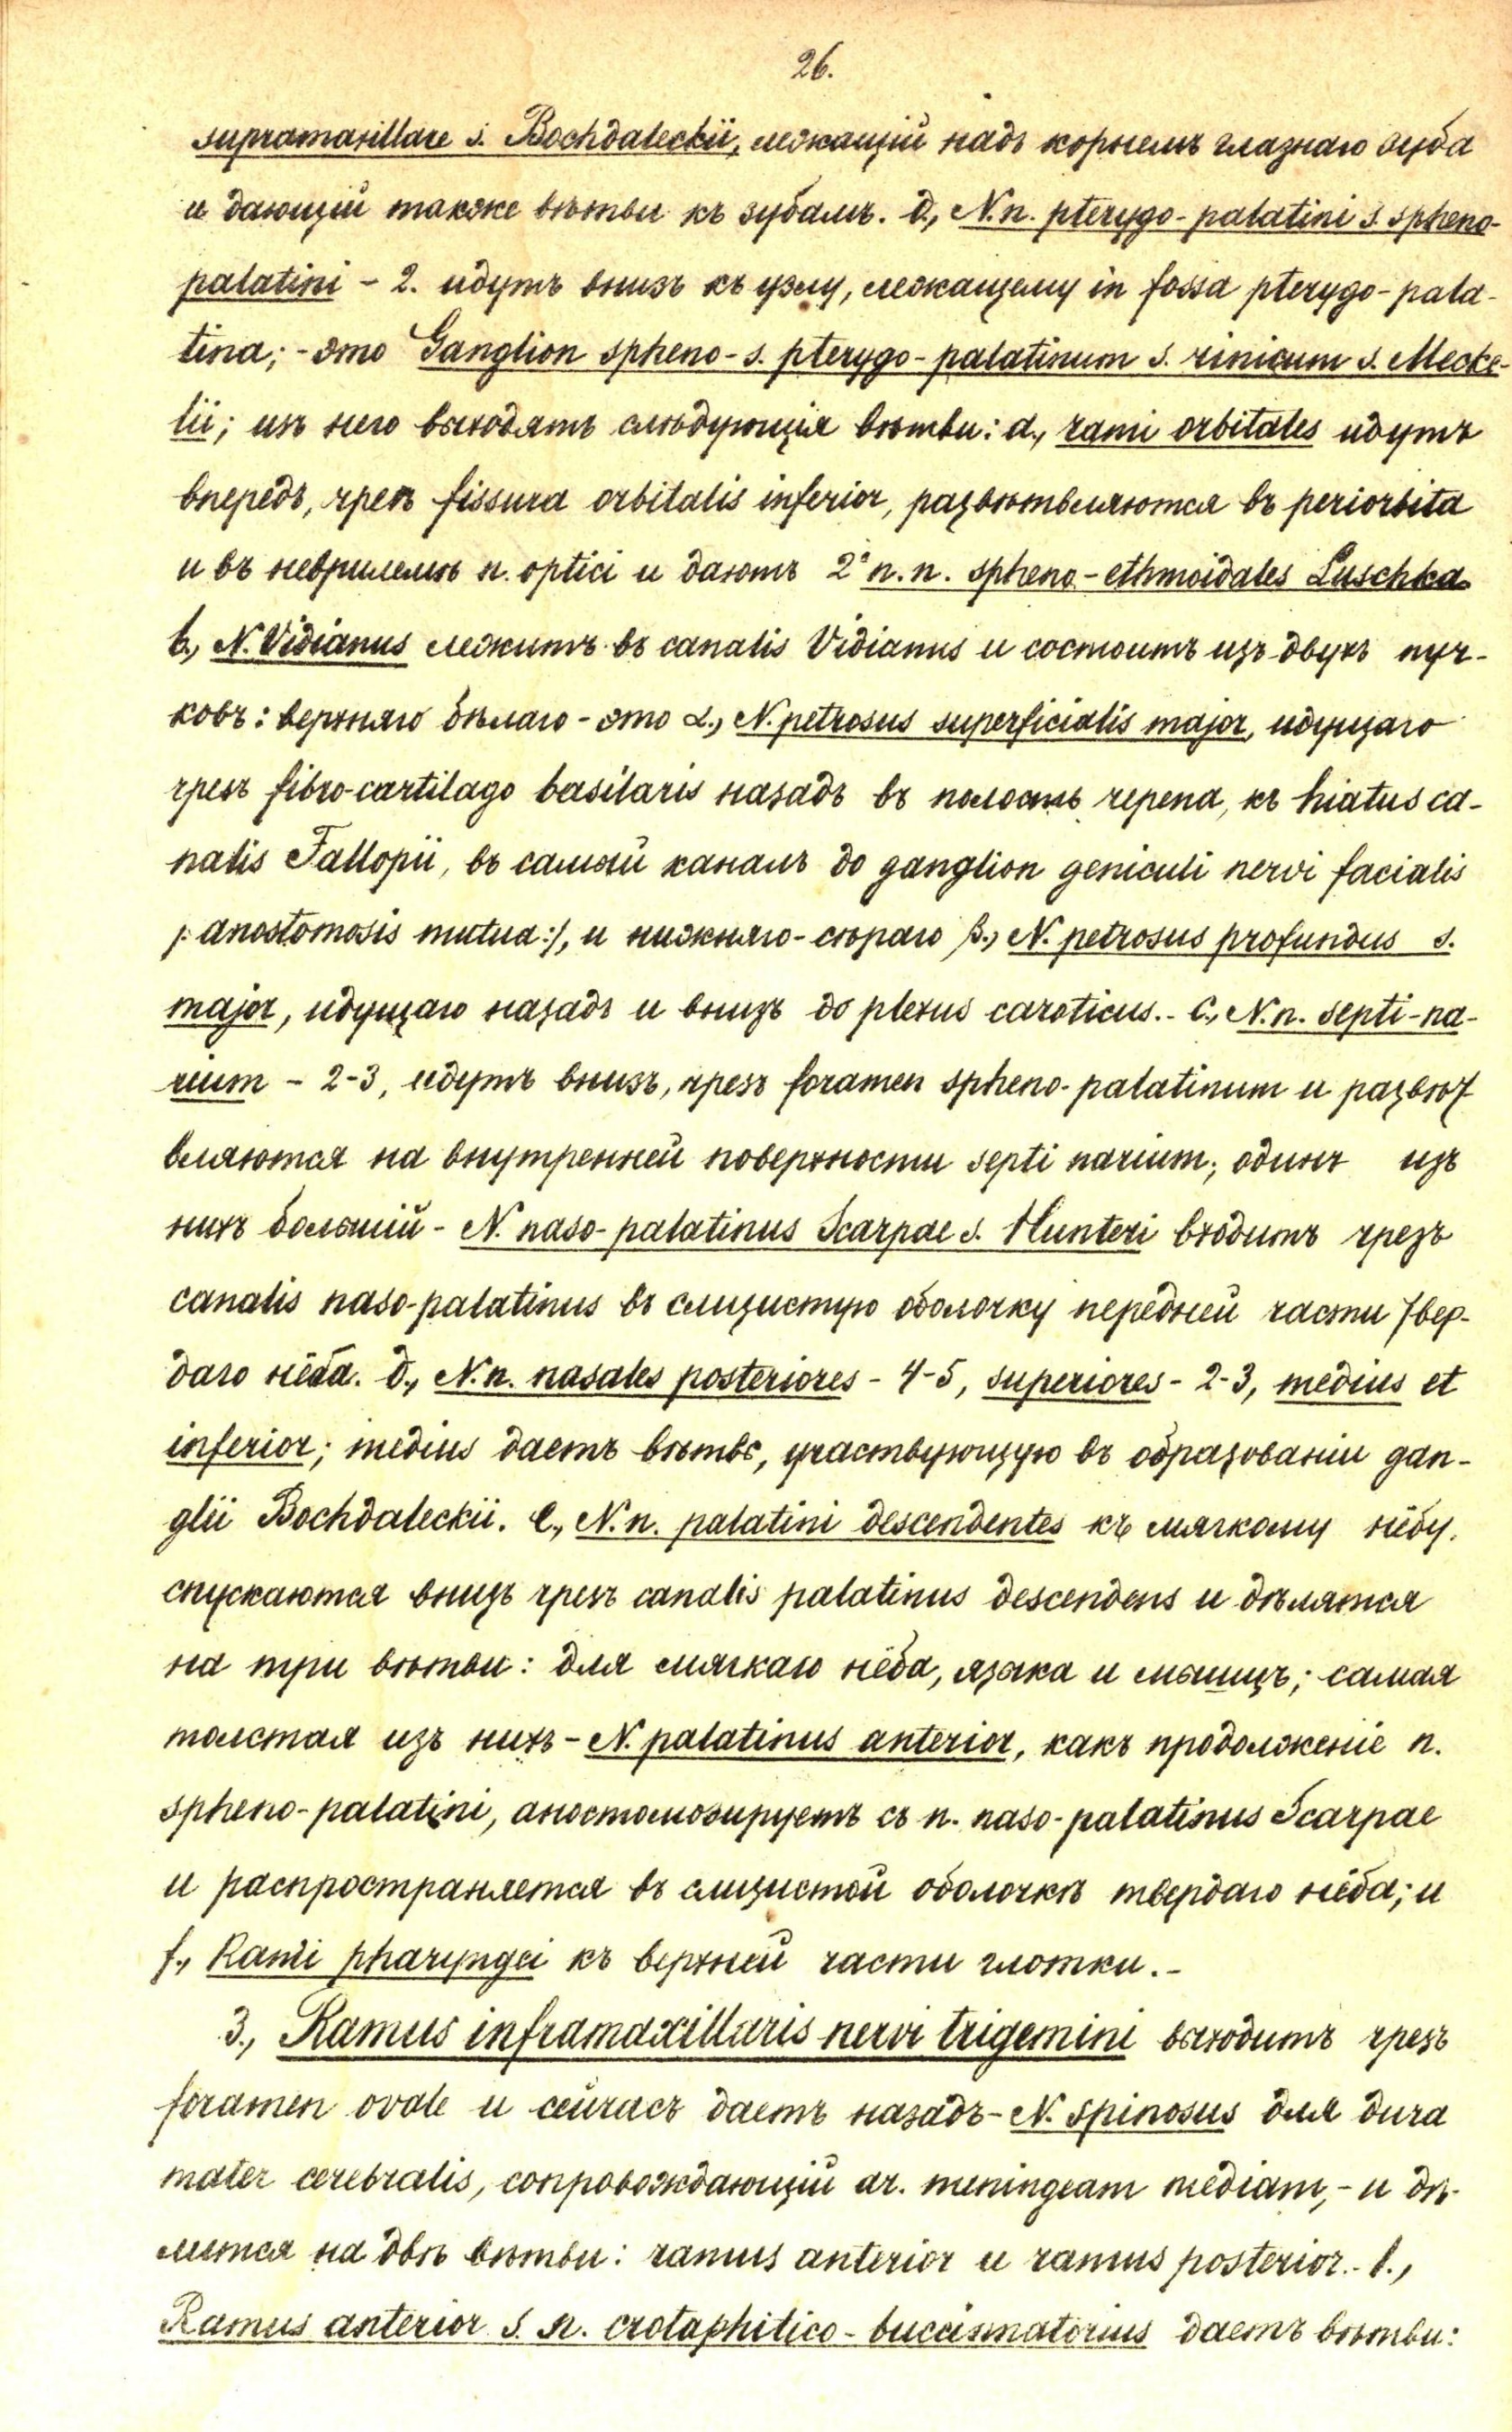 26.
supramaxillare s. Bochdaleckii, лежащій надъ корнемъ глазнаго зуба
и дающій также вѣтви къ зубамъ. d., N.n. pterygo-palatini s. spheno-
palatini - 2. идутъ внизъ къ узлу, лежащему in fossa pterygo-pala-
tina; - это Ganglion spheno- s. pterygo-palatinum s. rinicum s. Mecke-
lii; изъ него выходятъ слѣдующія вѣтви: a., rami orbitales идутъ
впередъ, чрезъ fissura orbitalis inferior, развѣтвляются въ periorbita
и въ неврилемѣ n. optici и даютъ 2 n.n. spheno-ethmoidales Luschka.
b., N. Vidianus лежитъ въ canalis Vidianus и состоитъ изъ двухъ пуч-
ковъ: верхняго бѣлаго - это α., N. petrosus superficialis major, идущаго
чрезъ fibro-cartilago basilaris назадъ въ полость черепа, къ hiatus ca-
nalis Fallopii, въ самый каналъ до ganglion geniculi nervi facialis
/: anostomosis mutua :/, и нижняго-сѣраго β., N. petrosus profundus s.
major, идущаго назадъ и внизъ до plexus caroticus. - c., N.n. septi-na-
rium - 2-3, идутъ внизъ, чрезъ foramen spheno-palatinum и развѣт-
вляются на внутренней поверхности septi narium; одинъ изъ
нихъ большій - N. naso-palatinus Scarpae s. Hunteri входитъ чрезъ
canalis naso-palatinus въ слизистую оболочку передней части твер-
даго нёба. d., N.n. nasales posteriores - 4-5, superiores - 2-3, medius et
inferior; medius даетъ вѣтвь, участвующую въ образованіи gan-
glii Bochdaleckii. e., N.n. palatini descendentes къ мягкому нёбу.
спускаются внизъ чрезъ canalis palatinus descendens и дѣлятся
на три вѣтви: для мягкаго нёба, языка и мышцъ; самая
толстая изъ нихъ - N. palatinus anterior, какъ продолженіе n.
spheno-palatini, аностомозируетъ съ n. naso-palatinus Scarpae
и распространяется въ слизистой оболочкѣ твердаго нёба; и
f., Rami pharyngei къ верхней части глотки. -
3., Ramus inframaxillaris nervi trigemini выходитъ чрезъ
foramen ovale и сейчасъ даетъ назадъ - N. spinosus для dura
mater cerebralis, сопровождающій ar. meningeam mediam, - и дѣ-
лится на двѣ вѣтви: ramus anterior и ramus posterior. - 1.,
Ramus anterior s. n. crotaphitico-buccinatorius даетъ вѣтви: